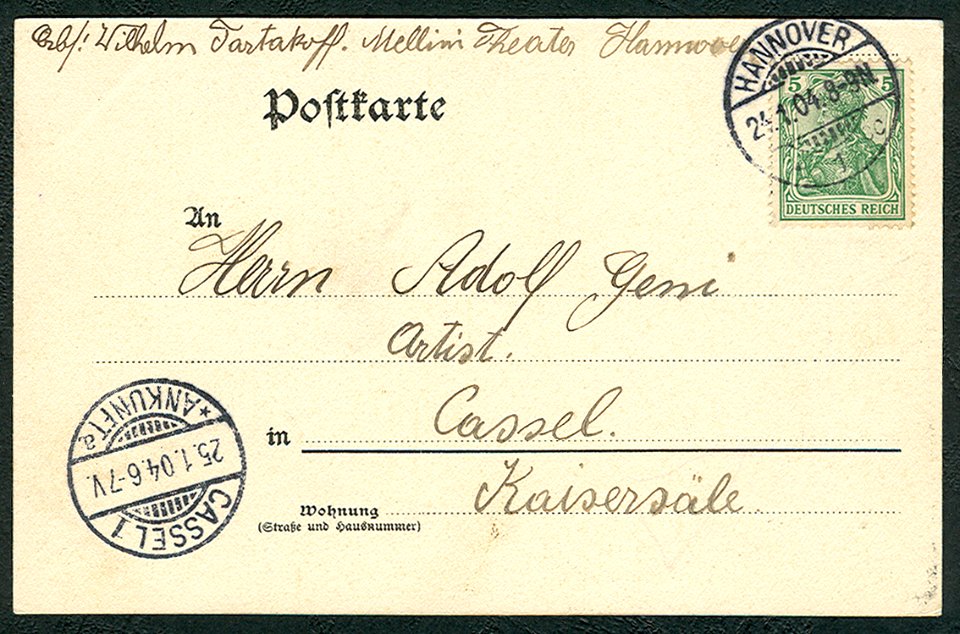 Abs: Wilhelm Tartakoff. Mellini Theater Hannover
HANNOVER
24.1.04.8-9N
1 c
5 5
DEUTSCHES REICH
Poſtkarte
An
Herrn Adolf Geni
Artist.
in Cassel.
Kaisersäle.
Wohnung
(Straße und Hausnummer)
*ANKUNFT a
25.1.04.6-7V.
CASSEL 1